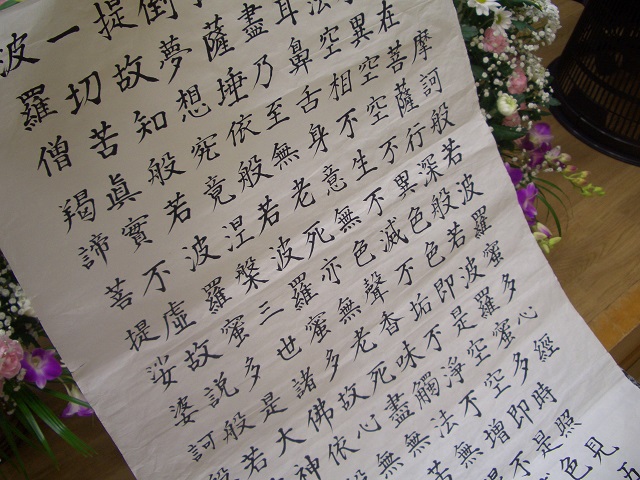 摩訶般若波羅蜜多心經
在菩薩行深般若波羅蜜多時照見五
異空空不異色色即是空空即是色
法空相不生不滅不垢不淨不增不
耳鼻舌身意無色聲香味觸法無
盡乃至無老死亦無老死盡無苦
薩埵依般若波羅蜜多故心無
倒夢想究竟涅槃三世諸佛依般
提故知般若波羅蜜多是大神
一切苦眞實不虛故說般若
波羅僧羯諦菩提娑婆訶般